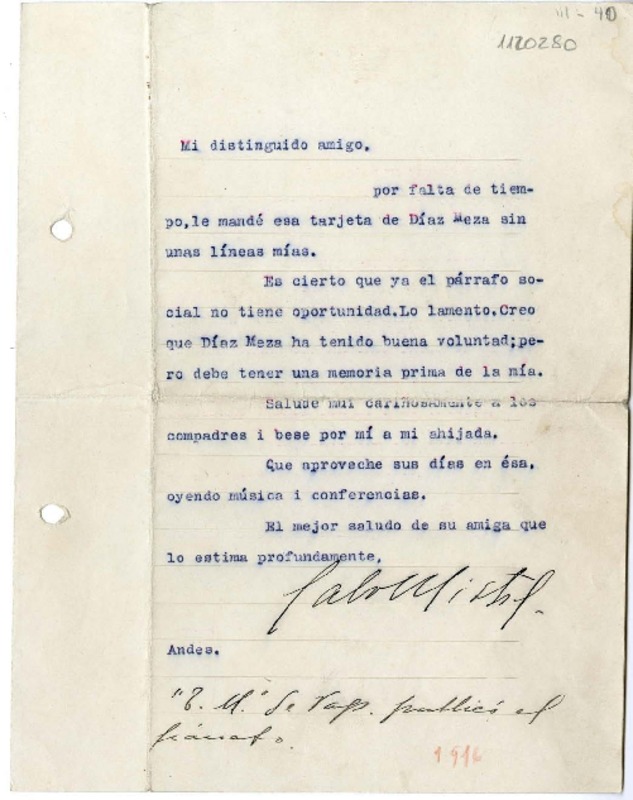 III - 40
1120280
Mi distinguido amigo.
por falta de tiem-
po,le mandé esa tarjeta de Díaz Meza sin
unas líneas mías.
Es cierto que ya el párrafo so-
cial no tiene oportunidad.Lo lamento.Creo
que Díaz Meza ha tenido buena voluntad;pe-
ro debe tener una memoria prima de la mía.
Salude mui cariñosamente a los
compadres i bese por mí a mi ahijada.
Que aproveche sus días en ésa,
oyendo música i conferencias.
El mejor saludo de su amiga que
lo estima profundamente,
Andes.
de publicó el
párrafo.
1916